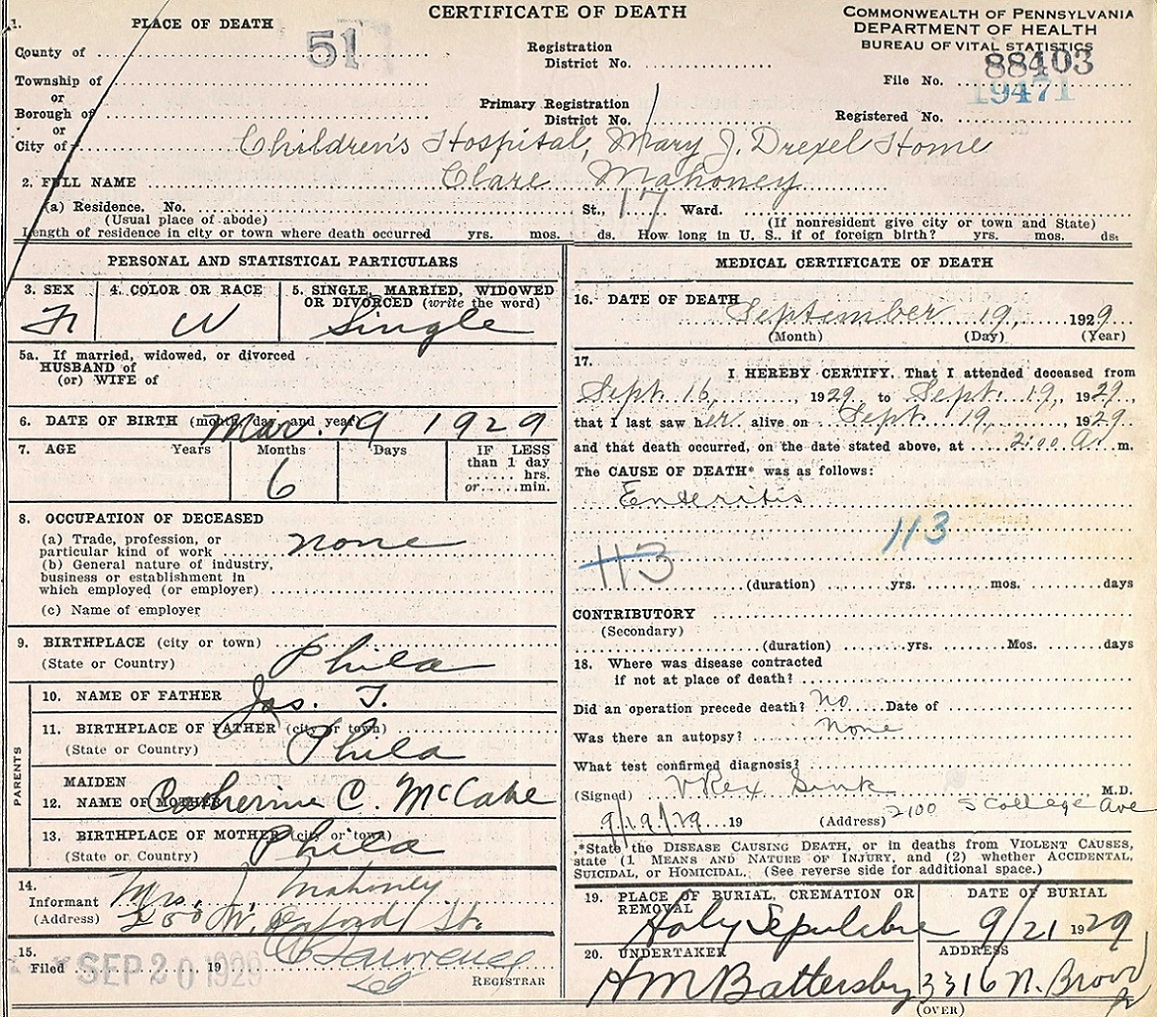 CERTIFICATE OF DEATH
COMMONWEALTH OF PENNSYLVANIA
DEPARTMENT OF HEALTH
BUREAU OF VITAL STATISTICS
1. PLACE OF DEATH
County of
51
Registration District No.
File No. 88403
19471
Township of
or
Borough of
Primary Registration District No. 1
Registered No.
or
City of
Children's Hospital, Mary J. Drexel Home
2. FULL NAME Clare Mahoney
(a) Residence. No. St., 17 Ward.
(Usual place of abode) (If nonresident give city or town and State)
Length of residence in city or town where death occurred yrs. mos. ds. How long in U. S., if of foreign birth? yrs. mos. ds.
PERSONAL AND STATISTICAL PARTICULARS
3. SEX 4. COLOR OR RACE 5. SINGLE, MARRIED, WIDOWED OR DIVORCED (write the word)
W Single
5a. If married, widowed, or divorced
HUSBAND of
(or) WIFE of
6. DATE OF BIRTH (month, day, and year) Mar. 19 1929
7. AGE Years Months Days IF LESS than 1 day
hrs.
or min.
6
8. OCCUPATION OF DECEASED
(a) Trade, profession, or particular kind of work none
(b) General nature of industry, business or establishment in which employed (or employer)
(c) Name of employer
9. BIRTHPLACE (city or town)
(State or Country) Phila
PARENTS
10. NAME OF FATHER Jas. T.
11. BIRTHPLACE OF FATHER (city or town)
(State or Country) Phila
MAIDEN
12. NAME OF MOTHER Catherine C. McCabe
13. BIRTHPLACE OF MOTHER (city or town)
(State or Country) Phila
14.
Informant Mrs. J. Mahoney
(Address) W. Oxford St.
15.
Filed SEP 20 1929 19 Lawrence
REGISTRAR
MEDICAL CERTIFICATE OF DEATH
16. DATE OF DEATH
September 19, 1929
(Month) (Day) (Year)
17.
I HEREBY CERTIFY, That I attended deceased from
Sept. 16, 1929 to Sept. 19, 1929,
that I last saw her alive on Sept. 19, 1929
and that death occurred, on the date stated above, at 2:00 A. m.
The CAUSE OF DEATH* was as follows:
Enteritis
113
113
(duration) yrs. mos. days
CONTRIBUTORY
(Secondary)
(duration) yrs. Mos. days
18. Where was disease contracted
if not at place of death?
Did an operation precede death? No Date of
Was there an autopsy? None
What test confirmed diagnosis?
(Signed) V Rex Sink M.D.
9/19/29 19 (Address) 2100 S College Ave
*State the DISEASE CAUSING DEATH, or in deaths from VIOLENT CAUSES,
state (1 MEANS AND NATURE OF INJURY, and (2) whether ACCIDENTAL,
SUICIDAL, or HOMICIDAL. (See reverse side for additional space.)
19. PLACE OF BURIAL, CREMATION OR REMOVAL DATE OF BURIAL
Holy Sepulchre 9/21 1929
20. UNDERTAKER ADDRESS
HM Battersby 3316 N. Broad
(OVER)